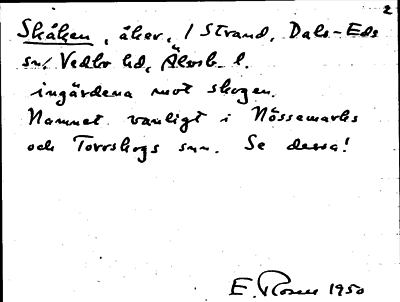 2
Skåken, åker, / Strand, Dals-Eds
sn/ Vedbo hd, Älvsb. l.
ingärdena mot skogen.
Namnet vanligt i Nössemarks
och Torrskogs snn. Se dessa!
E. Rosen 1950